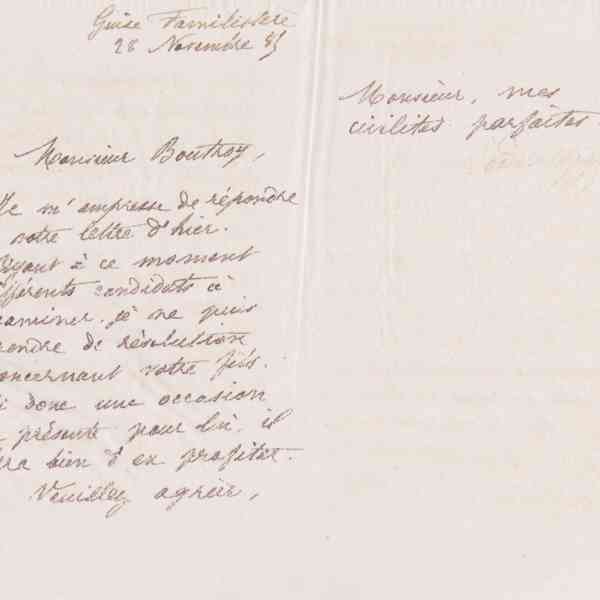 Guise Familistère
28 Novembre 85
Monsieur Boutroy,
Je m'empresse de répondre
votre lettre d'hier.
Ayant à ce moment
différents candidats à
examiner, je ne puis
prendre de résolution
concernant votre fils.
Si donc une occasion
se présente pour lui, il
fera bien d'en profiter.
Veuillez agréer,
Monsieur, mes
civilités parfaites.